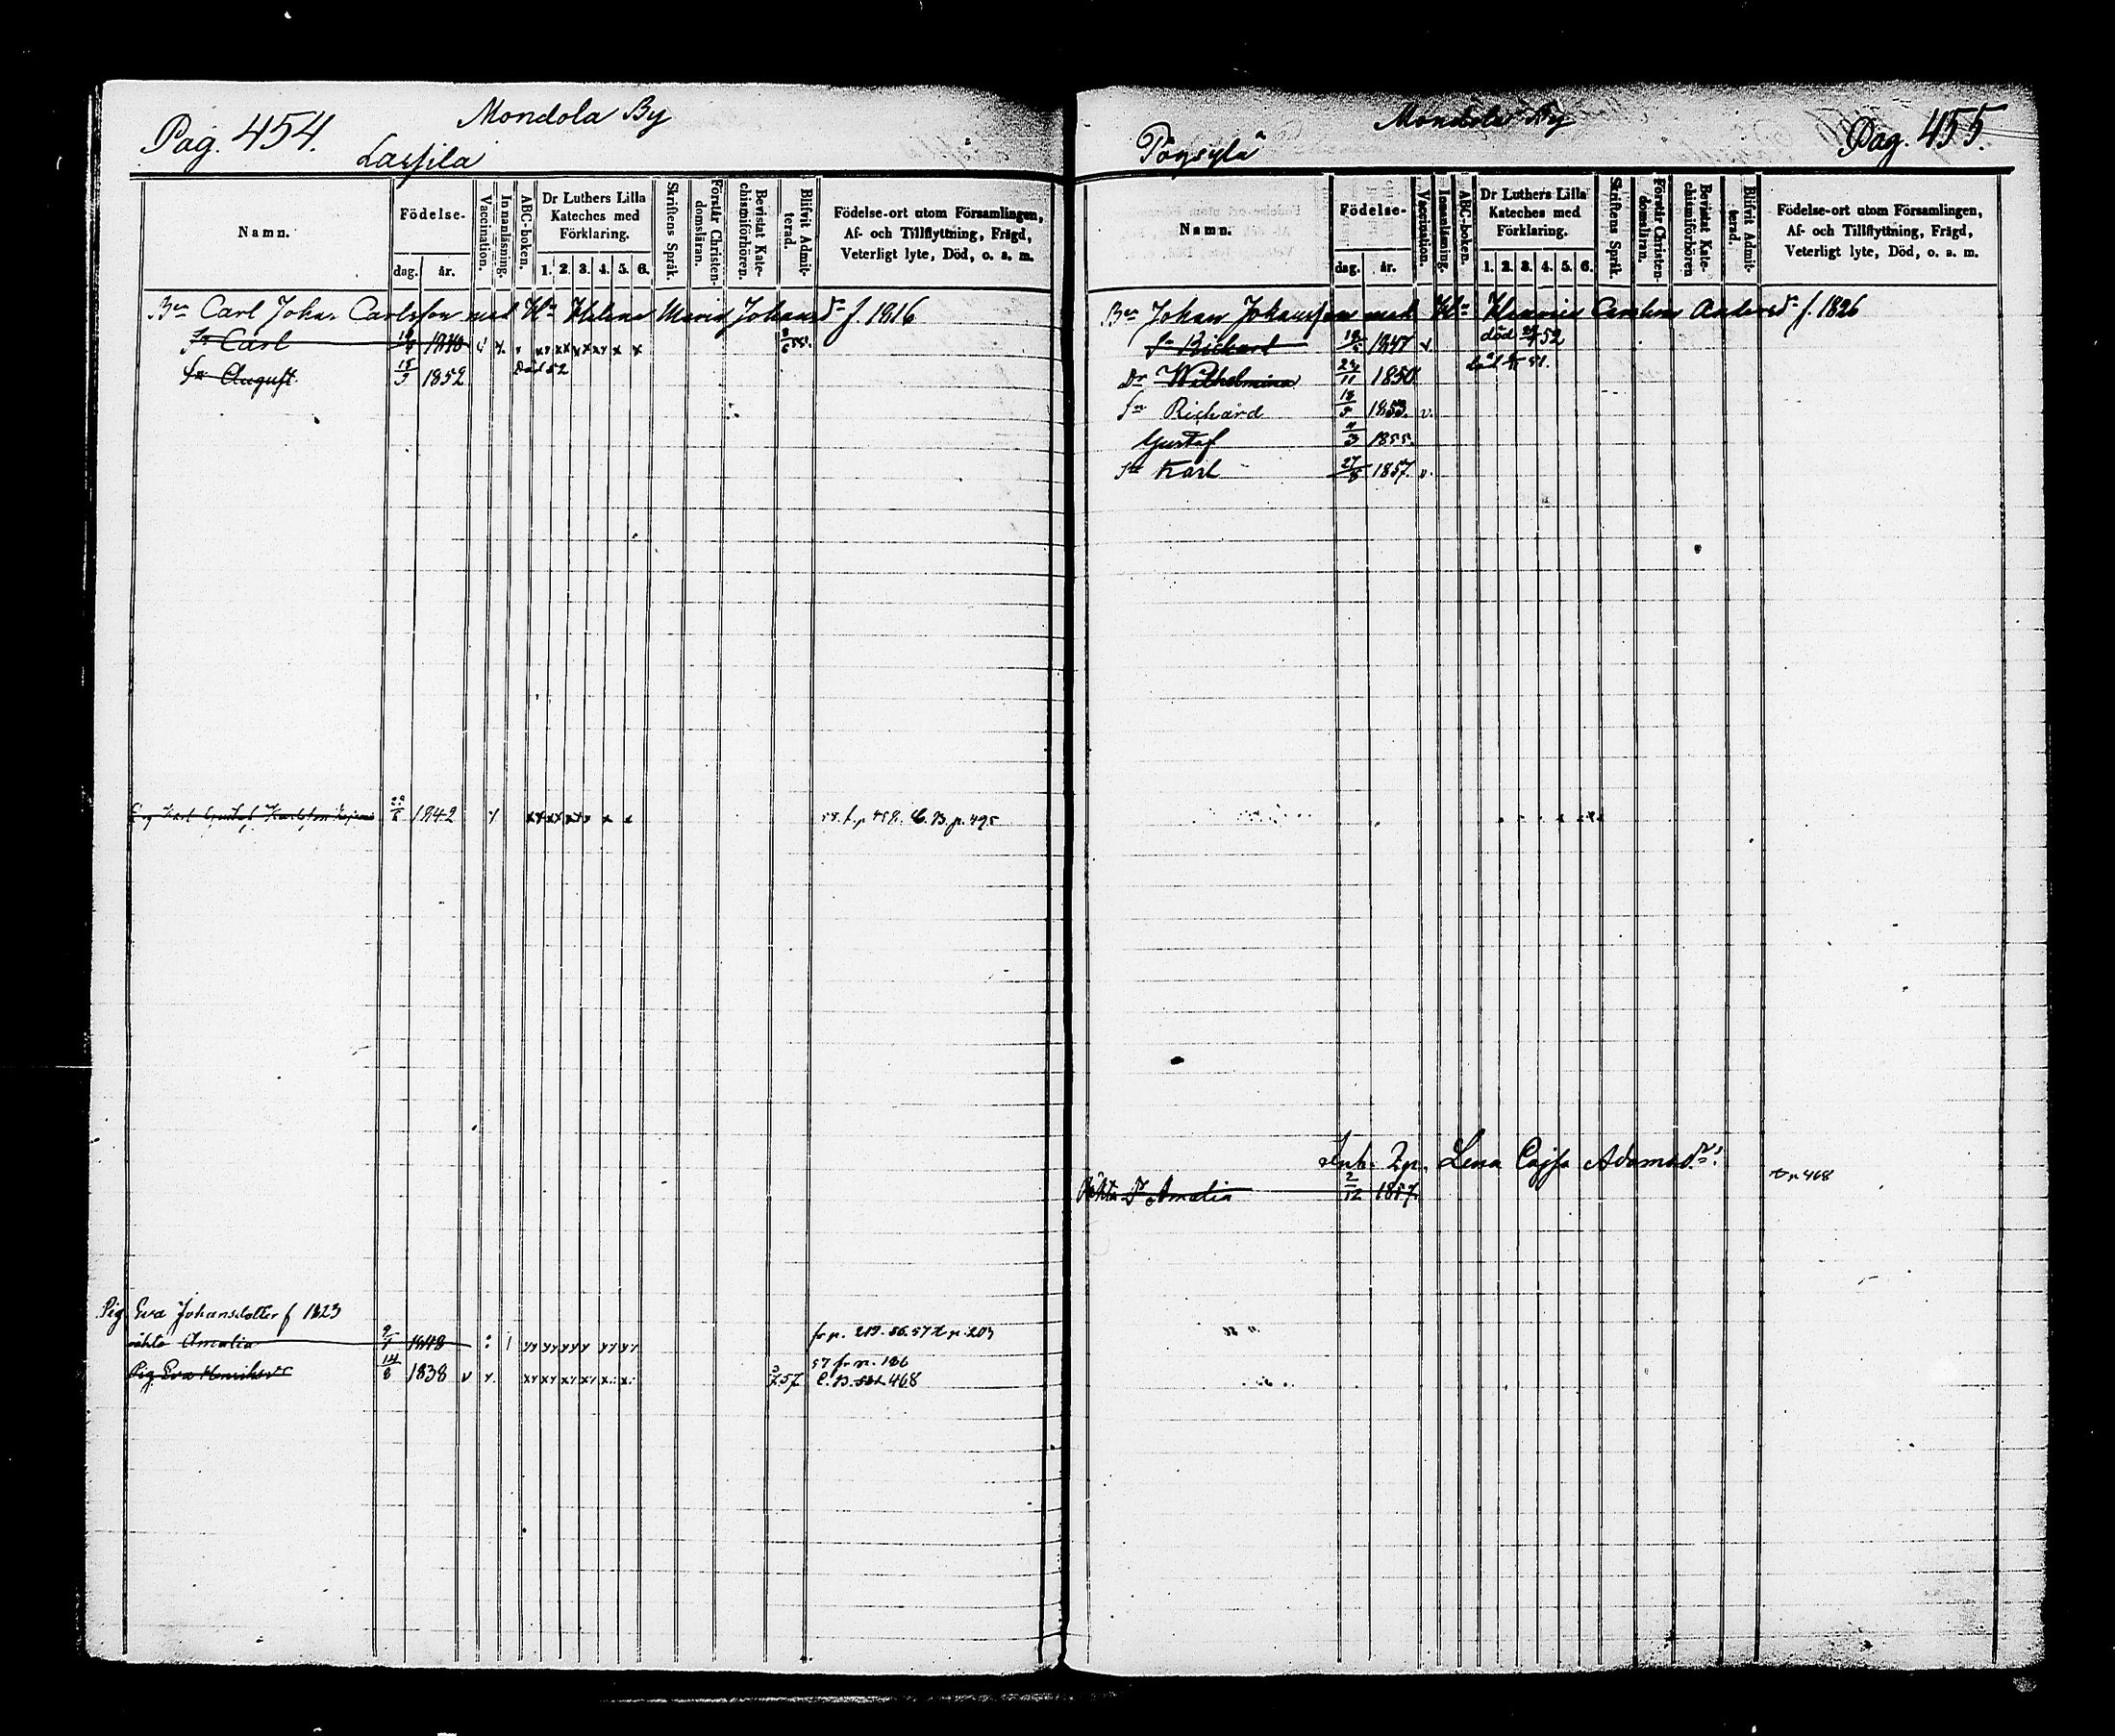 Pag. 454.
Mondola By
Lassila
Namn.
Födelse-
dag. år.
Vaccination.
Innanläsning.
ABC-boken.
Dr Luthers Lilla Kateches med Förklaring.
1. 2. 3. 4. 5. 6.
Skriftens Språk.
Förstår Christendomsläran.
Bevistat Katechismiförhören.
Blifvit Admitterad.
Födelse-ort utom Församlingen,
Af- och Tillflyttning, Frägd,
Veterligt lyte, Död, o. s. m.
Bn Carl Johan Carlsson med Hu Helena Maria Johansdr f. 1816
Sn Carl 1840
Sn August 1852 Död 52
Karl Gustaf Karlsson 1842 p. 458. C. B. p. 495
Pig Eva Johansdotter f 1823
oäkta Amalia 1848 fr p. 219. 56. 57 t p. 203
Pig Eva Henriksdr 14/8 1838 57 57 fr p. 186
C. B. 468
Mondola By
Pag. 455.
Pögsylä
Namn.
Födelse-
dag. år.
Vaccination.
Innanläsning.
ABC-boken.
Dr Luthers Lilla Kateches med Förklaring.
1. 2. 3. 4. 5. 6.
Skriftens Språk.
Förstår Christendomsläran.
Bevistat Katechismiförhören
Blifvit Admitterad.
Födelse-ort utom Församlingen,
Af- och Tillflyttning, Frägd,
Veterligt lyte, Död, o. s. m.
Bn Johan Johansson med Hu Henrica Carolina Andersdr f. 1826
Sn Richard 1847 död 52
Dr Wilhelmina 1850 död 51.
Sn Richard 1853. v.
Gustaf 4/3 1855.
Sn Karl 27/8 1857. v.
Inh. Lena Cajsa Adamsdr
Oäkta Dr Amalia 2/12 1857. t p 468